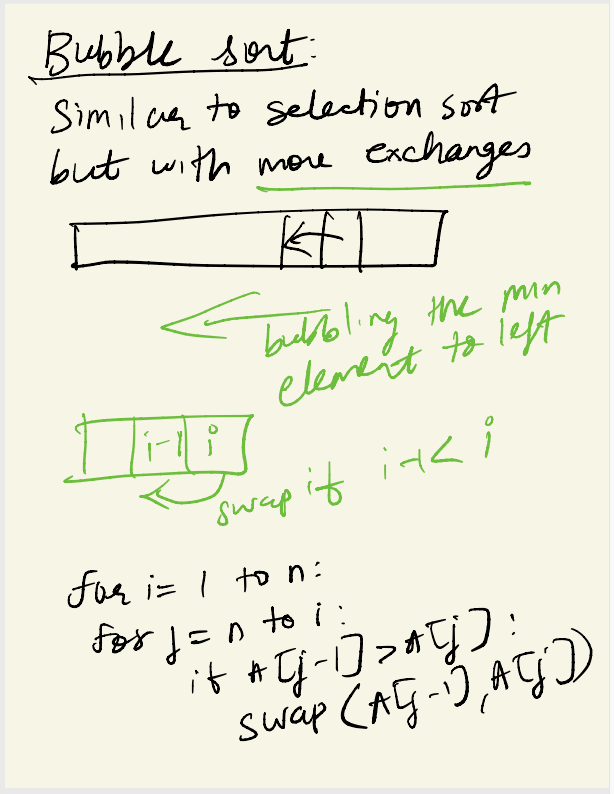 Bubble sort:
Similar to selection sort
but with more exchanges
bubbling the min
element to left
i-1 i
swap if i-1 < i
for i = 1 to n:
for j = n to i:
if A[j-1] > A[j]:
swap (A[j-1], A[j])